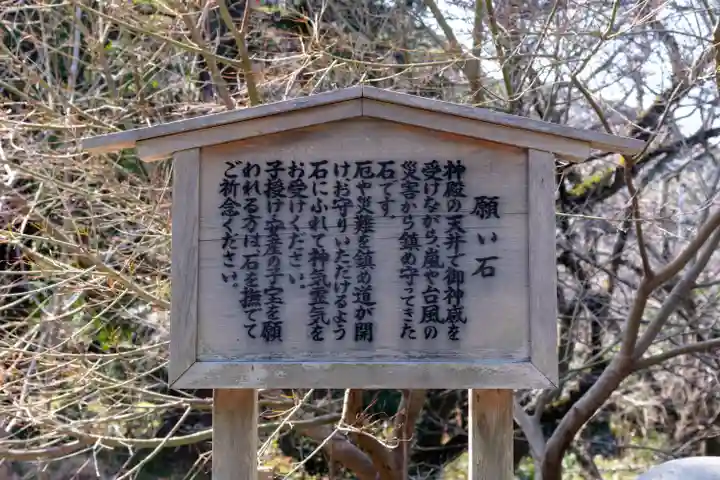 願い石
神殿の天井で御神威を
受けながら、嵐や台風の
災害から鎮め守ってきた
石です。
厄や災難を鎮め道が開
けお守りいただけるよう
石にふれて神気霊気を
お受けください。
子授け・安産の子宝を願
われる方は石を撫でて
ご祈念ください。